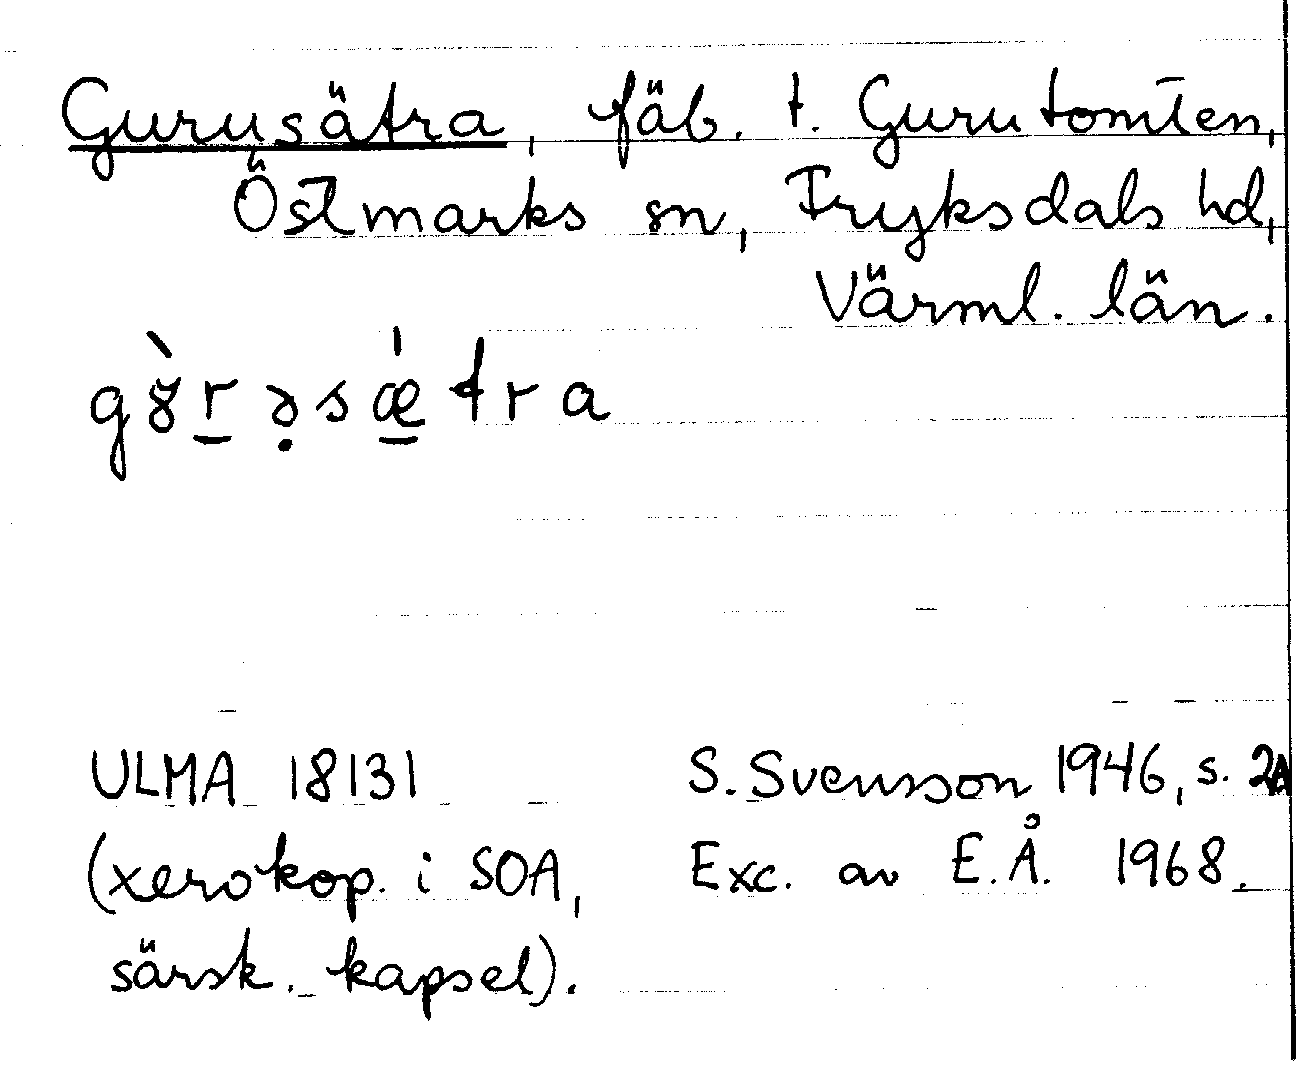 Gurusätra, fäb. t. Gurutomten,
Östmarks sn, Fryksdals hd,
Värml. län.
gɤ̀r̠ə̣sǽ̠tra
ULMA 18131 S. Svensson 1946, s. 2A
(xerokop. i SOA, Exc. av E.Å. 1968.
särsk. kapsel).